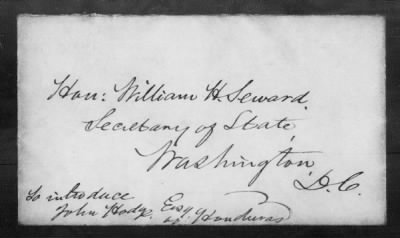 Hon: William H. Seward.
Secretary of State,
Washington,
D.C.
To introduce
John Hodge, Esq.
of Honduras